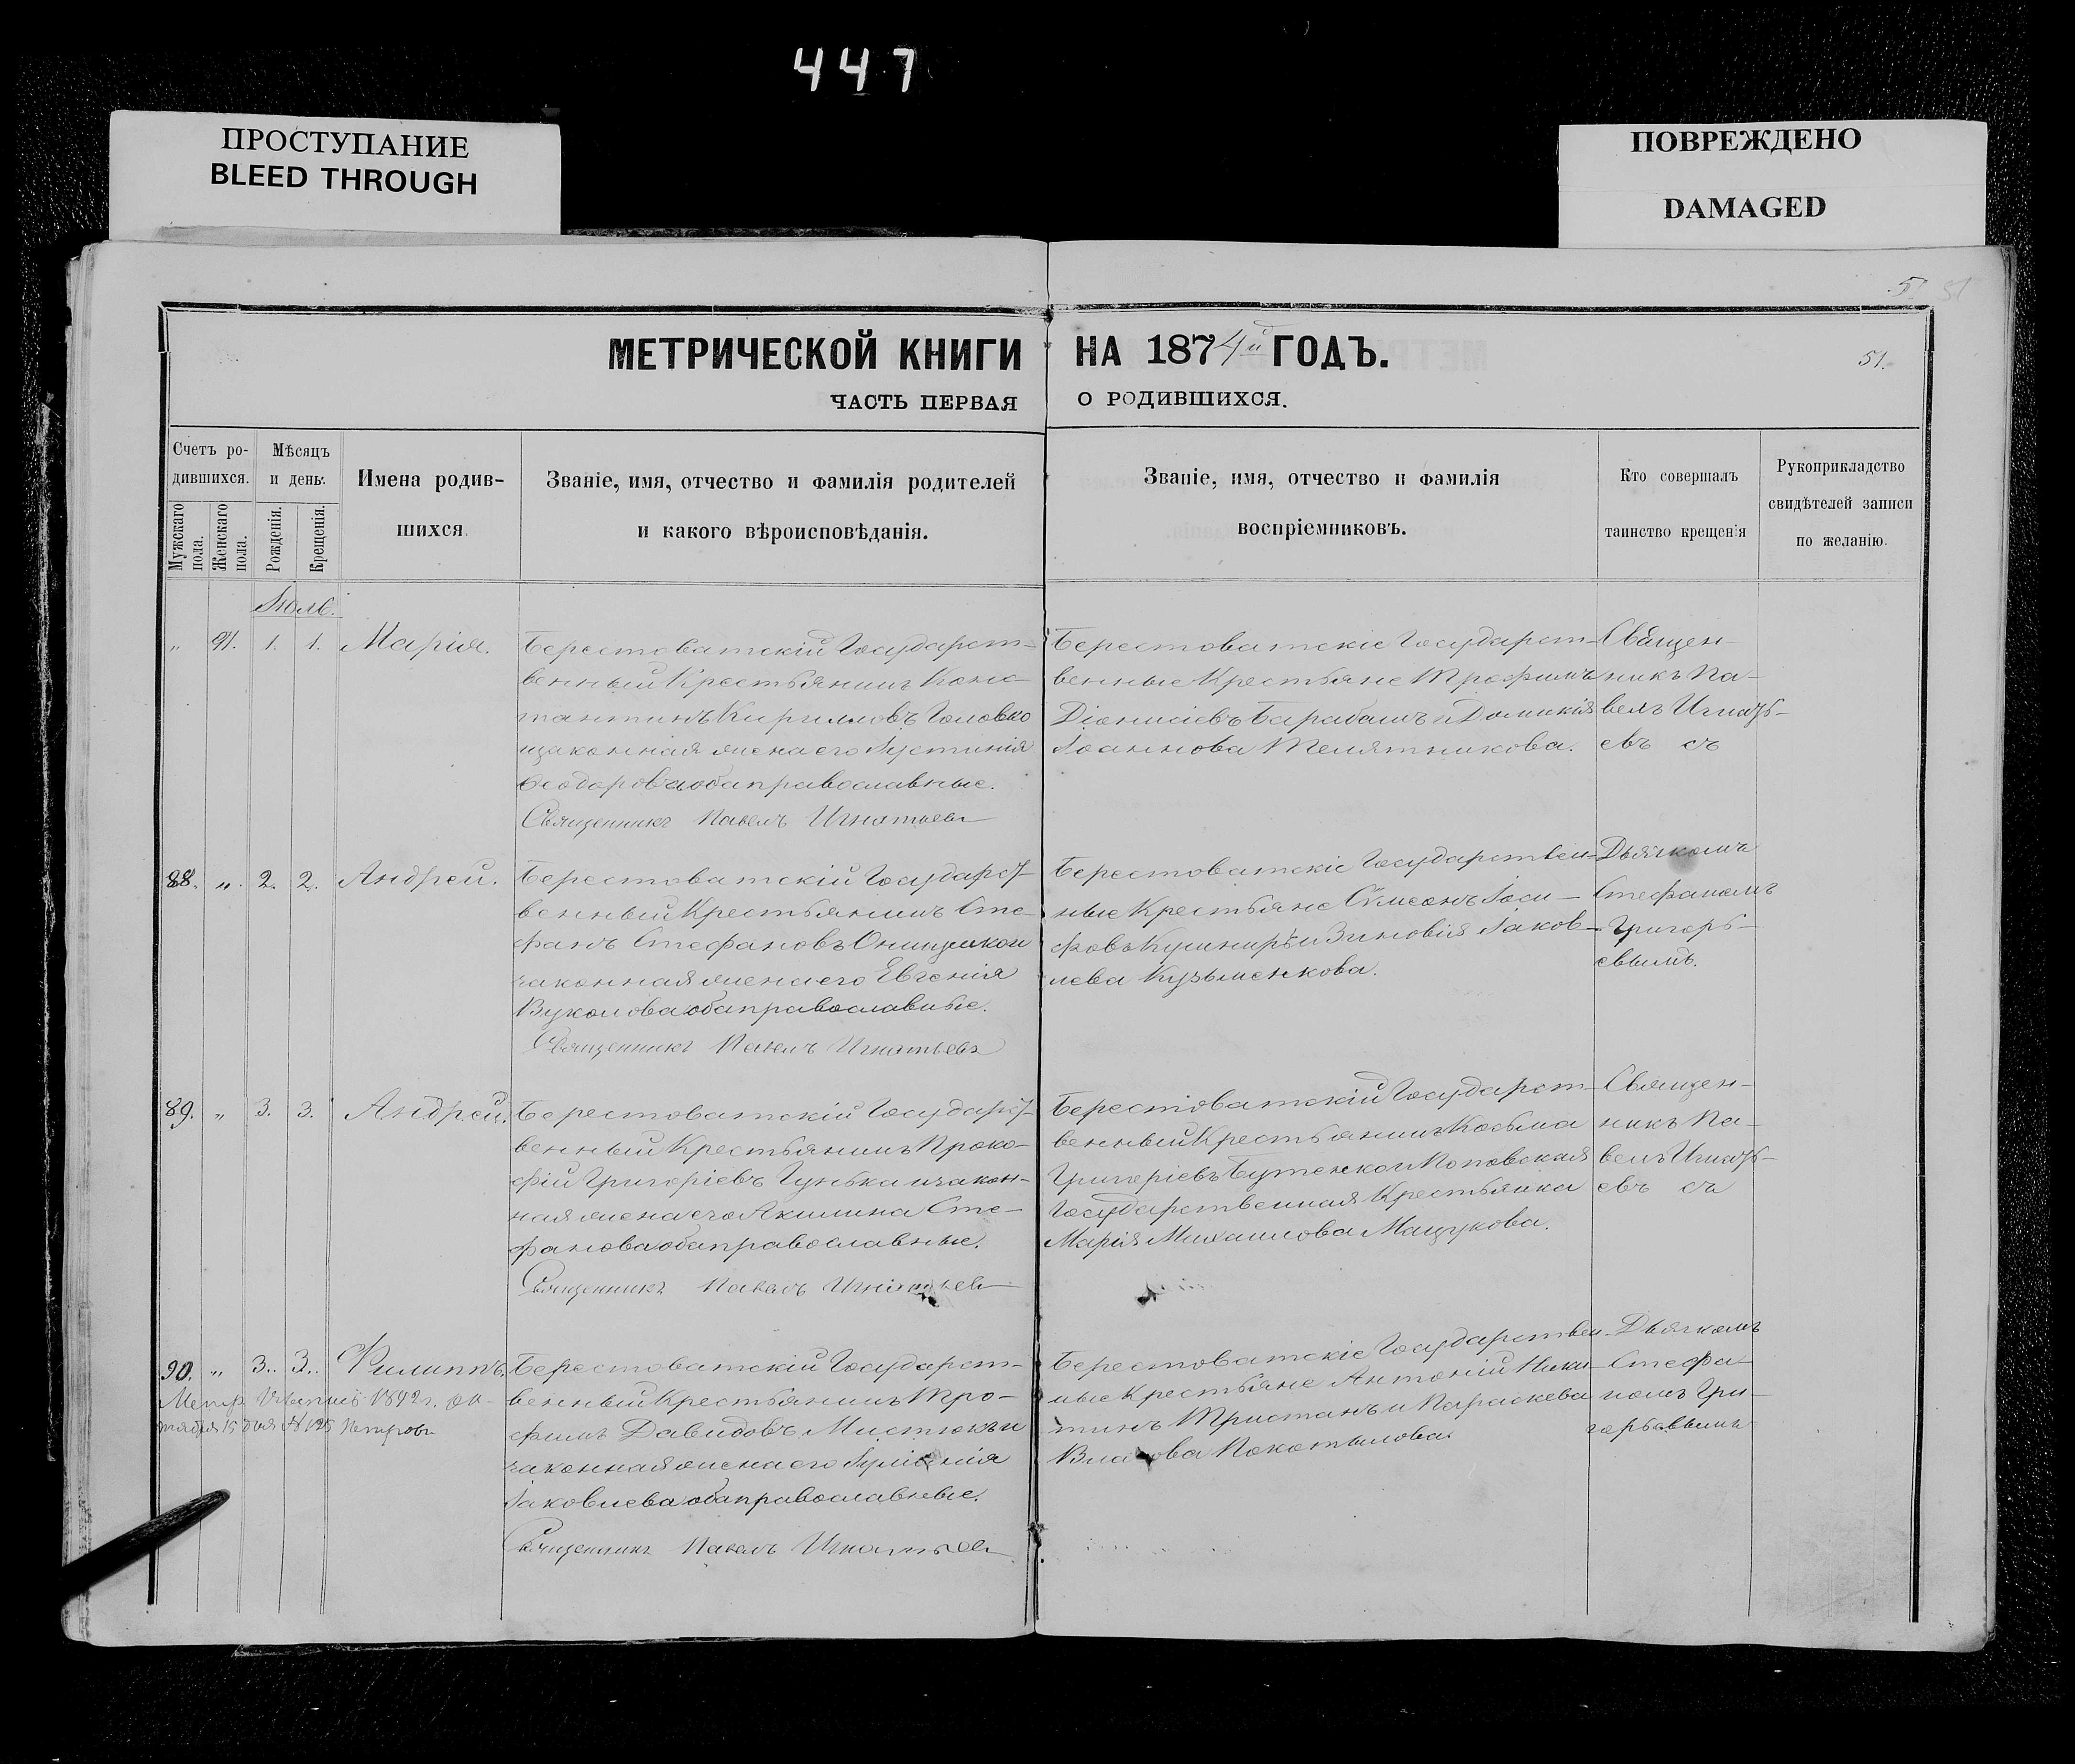 447
ПРОСТУПАНИЕ
BLEED THROUGH
ПОВРЕЖДЕНО
DAMAGED
51
МЕТРИЧЕСКОЙ КНИГИ НА 1874й ГОДЪ.
51.
ЧАСТЬ ПЕРВАЯ О РОДИВШИХСЯ.
Счетъ ро-
дившихся.
Мужскаго пола.
Женскаго пола.
Мѣсяцъ
и день.
Рожденія.
Крещенія.
Имена родив-
шихся.
Званіе, имя, отчество и фамилія родителей
и какого вѣроисповѣданія.
Званіе, имя, отчество и фамилія
воспріемниковъ.
Кто совершалъ
таинство крещенія
Рукоприкладство
свидѣтелей записи
по желанію.
Іюль.
„ 91. 1. 1. Марія.
Берестоватскій Государст-
венный Крестьянинъ Конс-
тантинъ Кирилловъ Головко
и законная жена его Іустинія
Ѳеодорова оба православные.
Священникъ Павелъ Игнатьевъ
Берестоватскіе Государст-
венные Крестьяне Трофимъ
Діонисіевъ Барабашъ и Домникія
Іоаннова Телятникова.
Священ-
никъ Па-
велъ Игнатъ-
евъ съ
88. „ 2. 2. Андрей.
Берестоватскій Государст-
венный Крестьянинъ Сте-
фанъ Стефановъ Онищенко и
законная жена его Евгенія
Вуколова оба православные.
Священникъ Павелъ Игнатьевъ
Берестоватскіе Государствен-
ные Крестьяне Сѵмеонъ Іоси-
фовъ Кушниръ и Зиновія Іаков-
лева Кузьменкова.
Дьячкомъ
Стефаномъ
Григорь-
евымъ.
89. „ 3. 3. Андрей.
Берестоватскій Государст-
венный Крестьянинъ Проко-
фій Григоріевъ Гунька и закон-
ная жена его Акилина Сте-
фанова оба православные.
Священникъ Павелъ Игнатьевъ
Берестоватскій Государст-
венный Крестьянинъ Косьма
Григоріевъ Бутенко и Поповская
Государственная Крестьянка
Марія Михаилова Мащукова.
Священ-
никъ Па-
велъ Игнатъ-
евъ съ
90. „ 3. 3. Филиппъ.
1892 г.
15 дня № 125
Берестоватскій Государст-
венный Крестьянинъ Тро-
фимъ Давидовъ Мистюкъ и
законная жена его Іуліанія
Іаковлева оба православные.
Священникъ Павелъ Игнатьевъ
Берестоватскіе Государствен-
ные Крестьяне Антоній Ники-
тинъ Тристанъ и Параскева
Власова Покотылова.
Дьячкомъ
Стефа-
номъ Гри-
горьевымъ